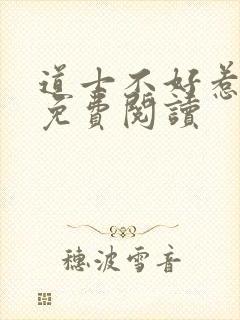 道士不好惹
免費閱讀
穗波雪音